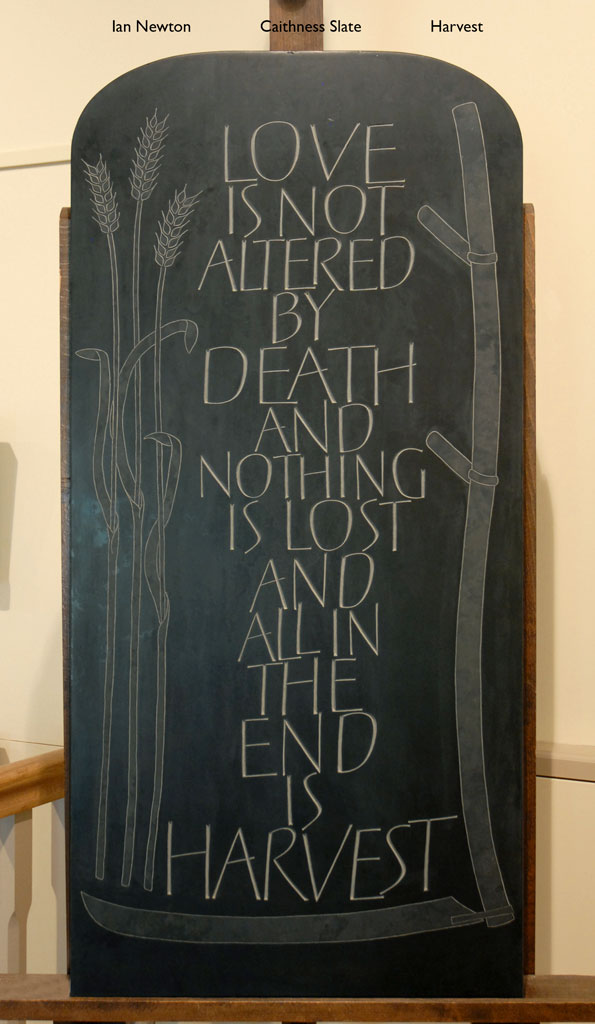 Ian Newton Caithness Slate Harvest
LOVE
IS NOT
ALTERED
BY
DEATH
AND
NOTHING
IS LOST
AND
ALL IN
THE
END
IS
HARVEST